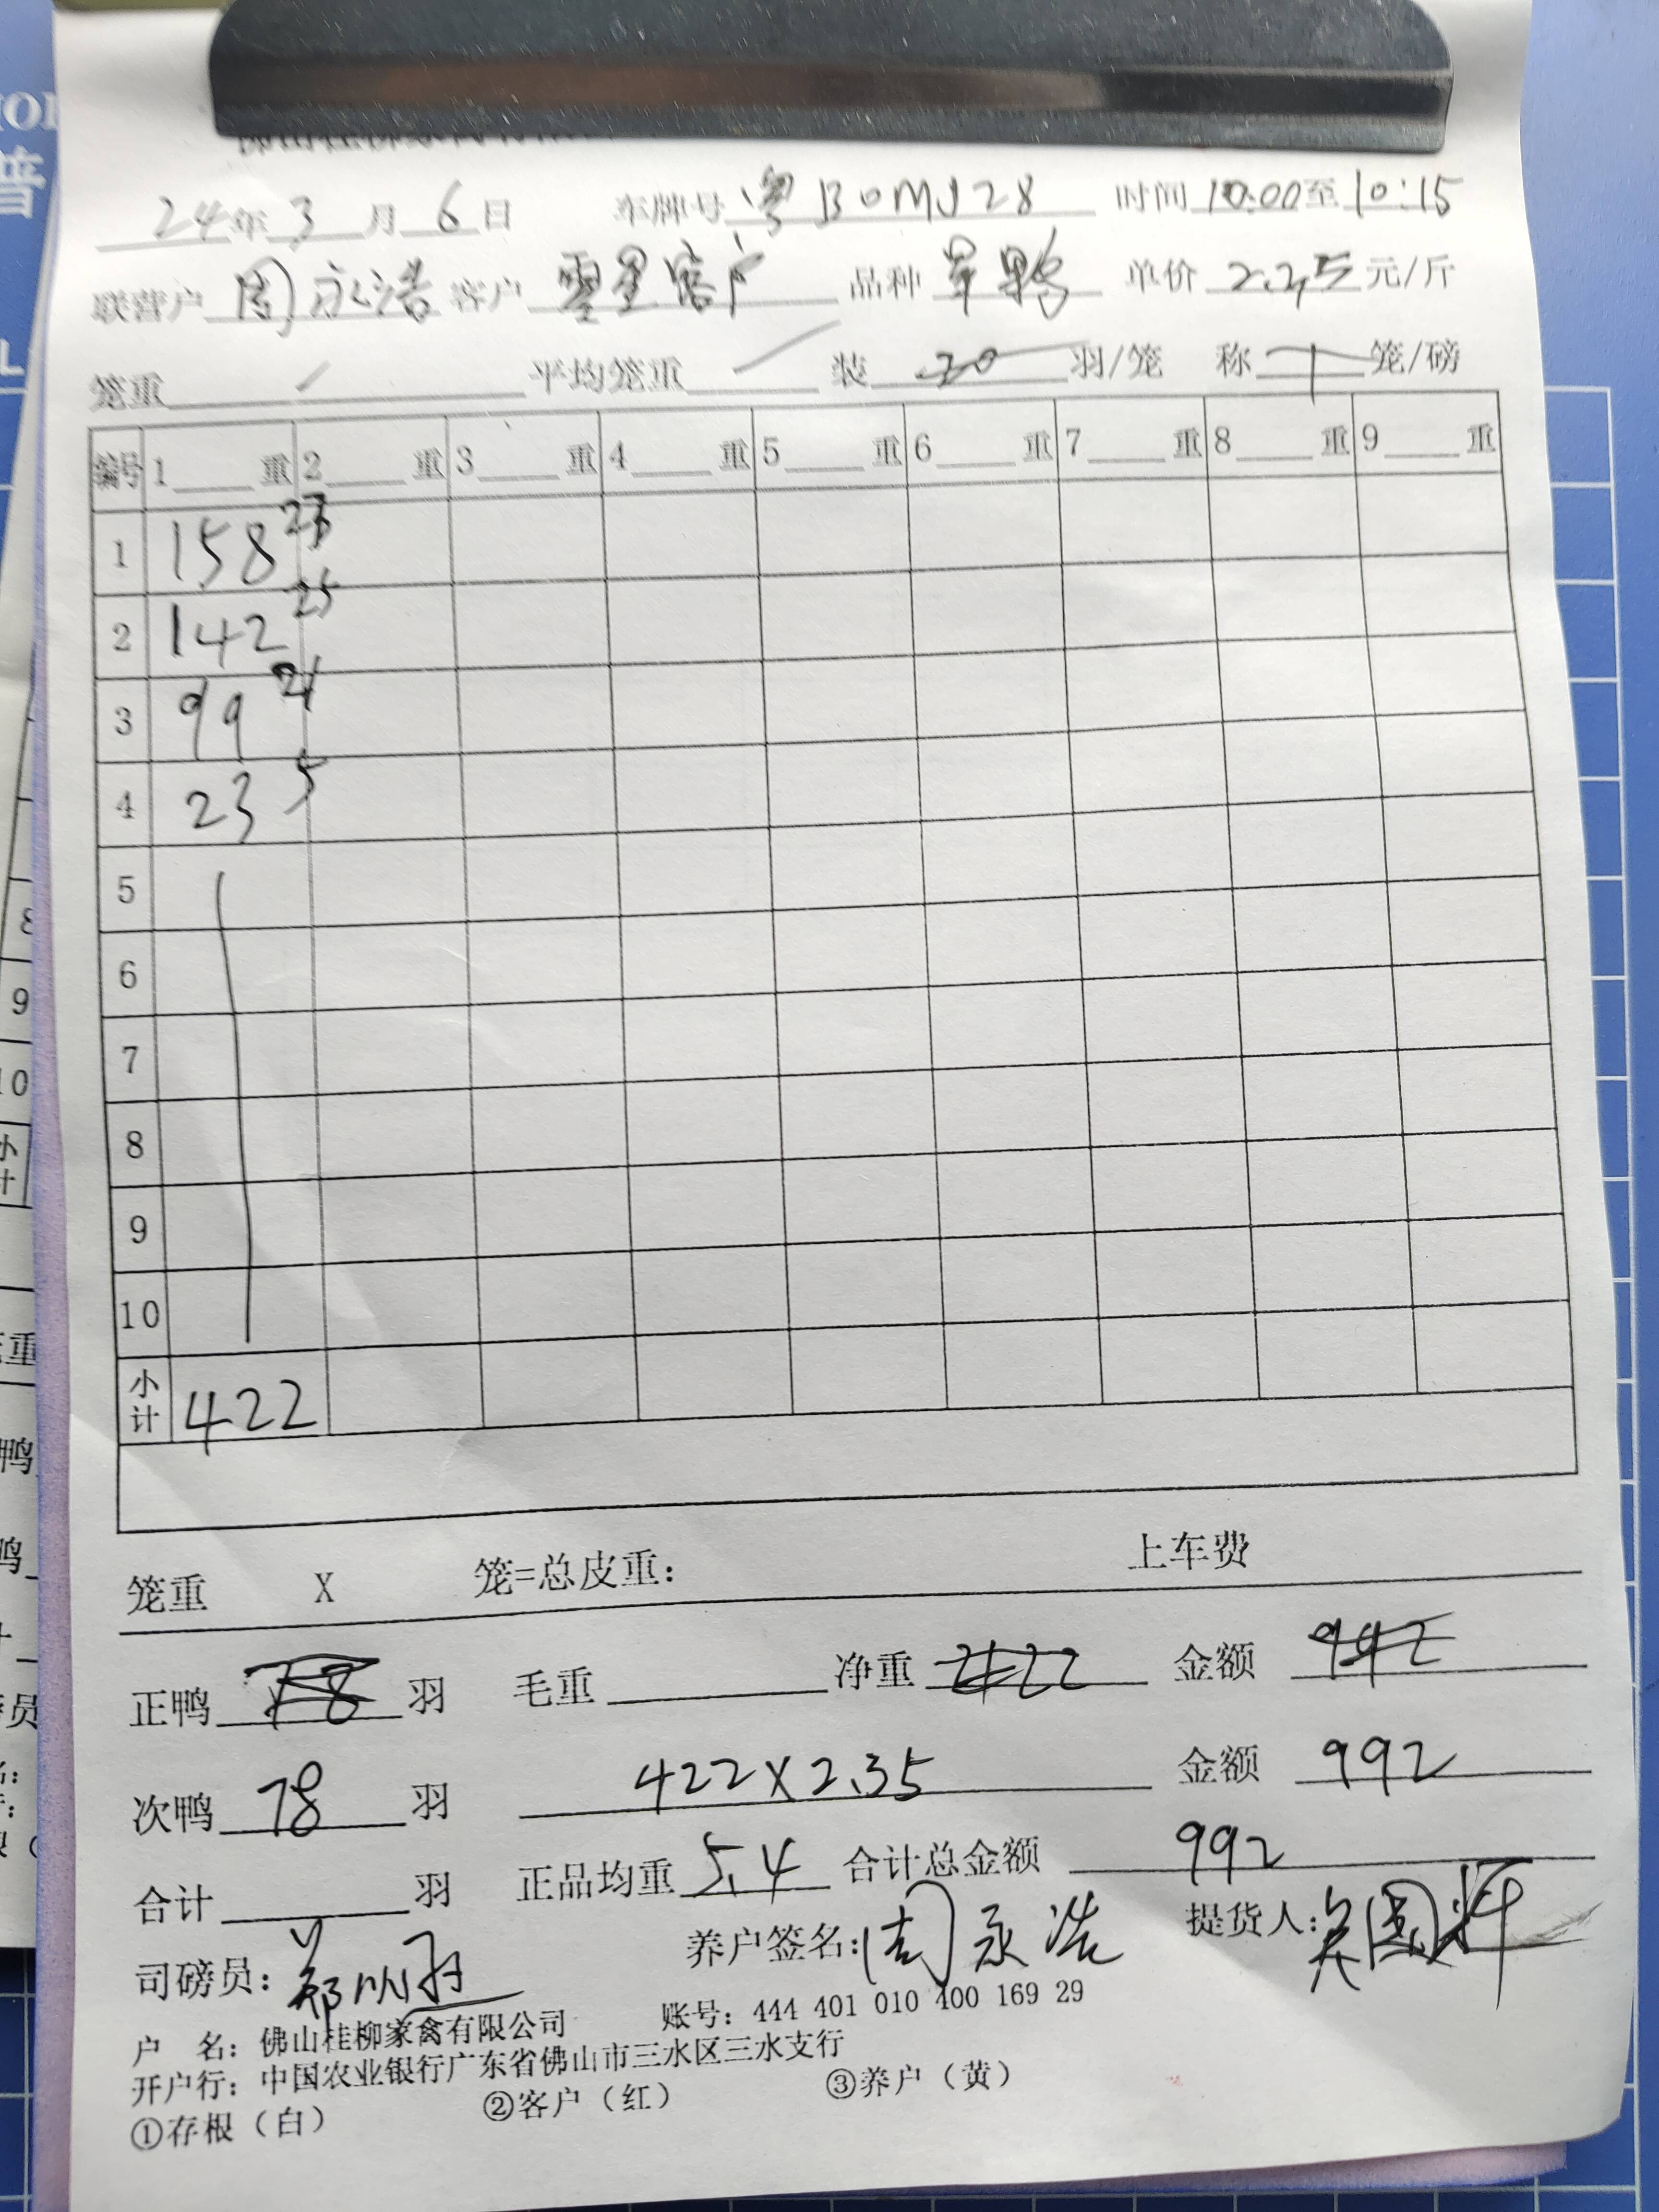 24年3月6日 车牌号 粤B0MJ28 时间10:00至10:15
联营户 周永浩 客户 零星客户 品种 单价 2.35 元/斤
笼重 平均笼重 装 20 羽/笼 称 1 笼/磅
编号 1 重 2 重 3 重 4 重 5 重 6 重 7 重 8 重 9 重
1 158
2 142 25
3 99 21
4 23 5
5
6
7
8
9
10
小计 422
笼重 X 笼=总皮重: 上车费
正鸭 78 羽 毛重 净重 422 金额
次鸭 78 羽 422X2.35 金额 992
合计 羽 正品均重 5.4 合计总金额 992
司磅员: 养户签名: 周永浩 提货人: 吴国辉
户 名: 佛山桂柳家禽有限公司 账号: 444 401 010 400 169 29
开户行: 中国农业银行广东省佛山市三水区三水支行
①存根（白） ②客户（红） ③养户（黄）